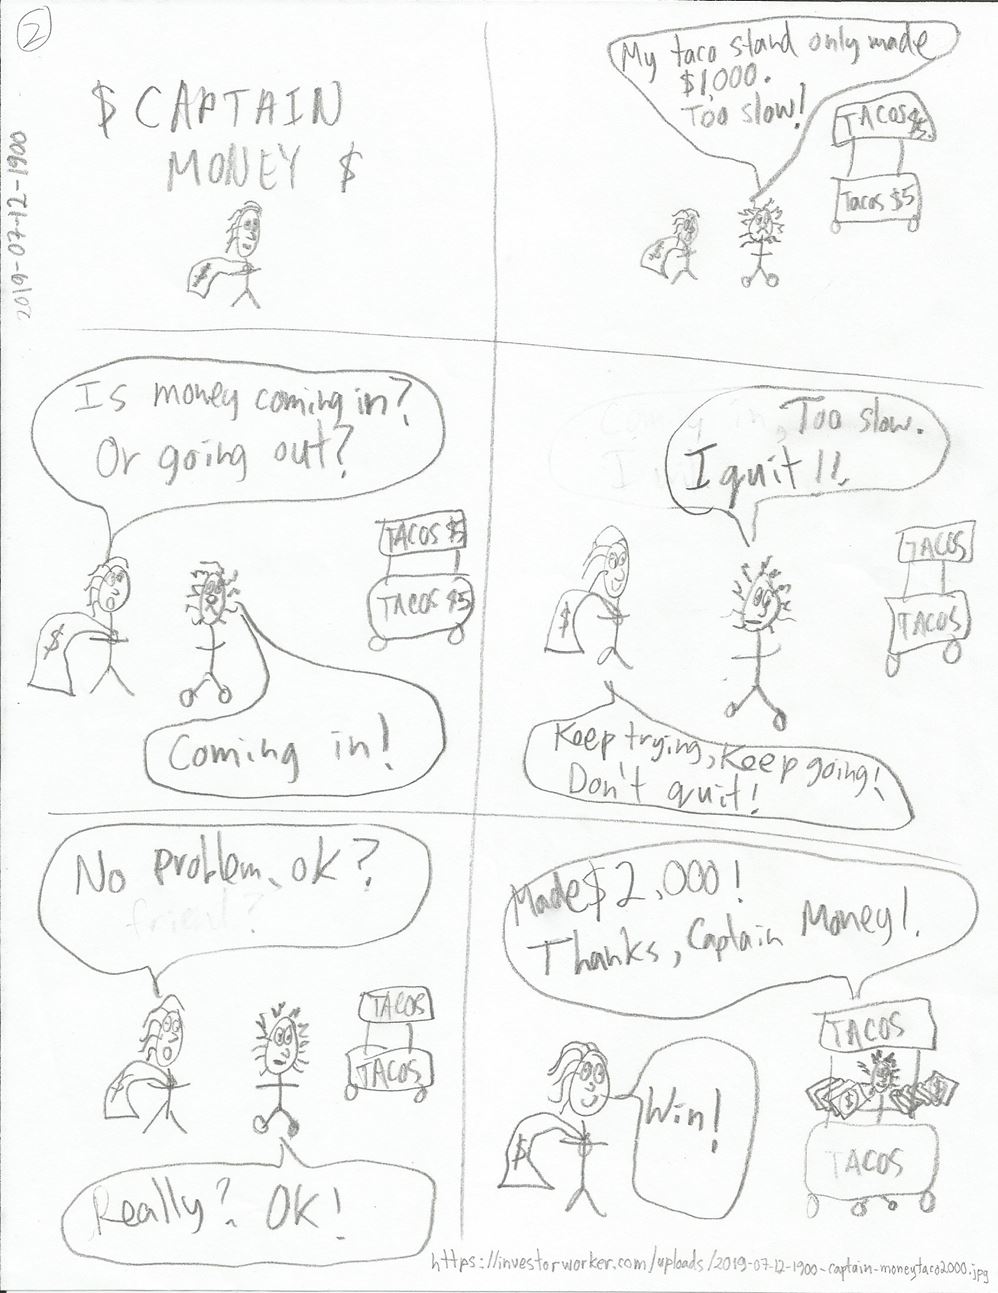 2
2019-07-12-1900
$ CAPTAIN
MONEY $
$
My taco stand only made
$1,000.
Too slow!
TACOS $5
Tacos $5
$
Is money coming in?
Or going out?
TACOS $5
TACOS $5
$
Coming in!
Coming in, Too slow.
I quit!!
TACOS
TACOS
$
Keep trying, Keep going!
Don't quit!
No problem, ok?
friend?
TACOS
TACOS
$
Really? OK!
Made $2,000!
Thanks, Captain Money!
TACOS
$ $
Win!
$
TACOS
https://investorworker.com/uploads/2019-07-12-1900-captain-moneytaco2000.jpg